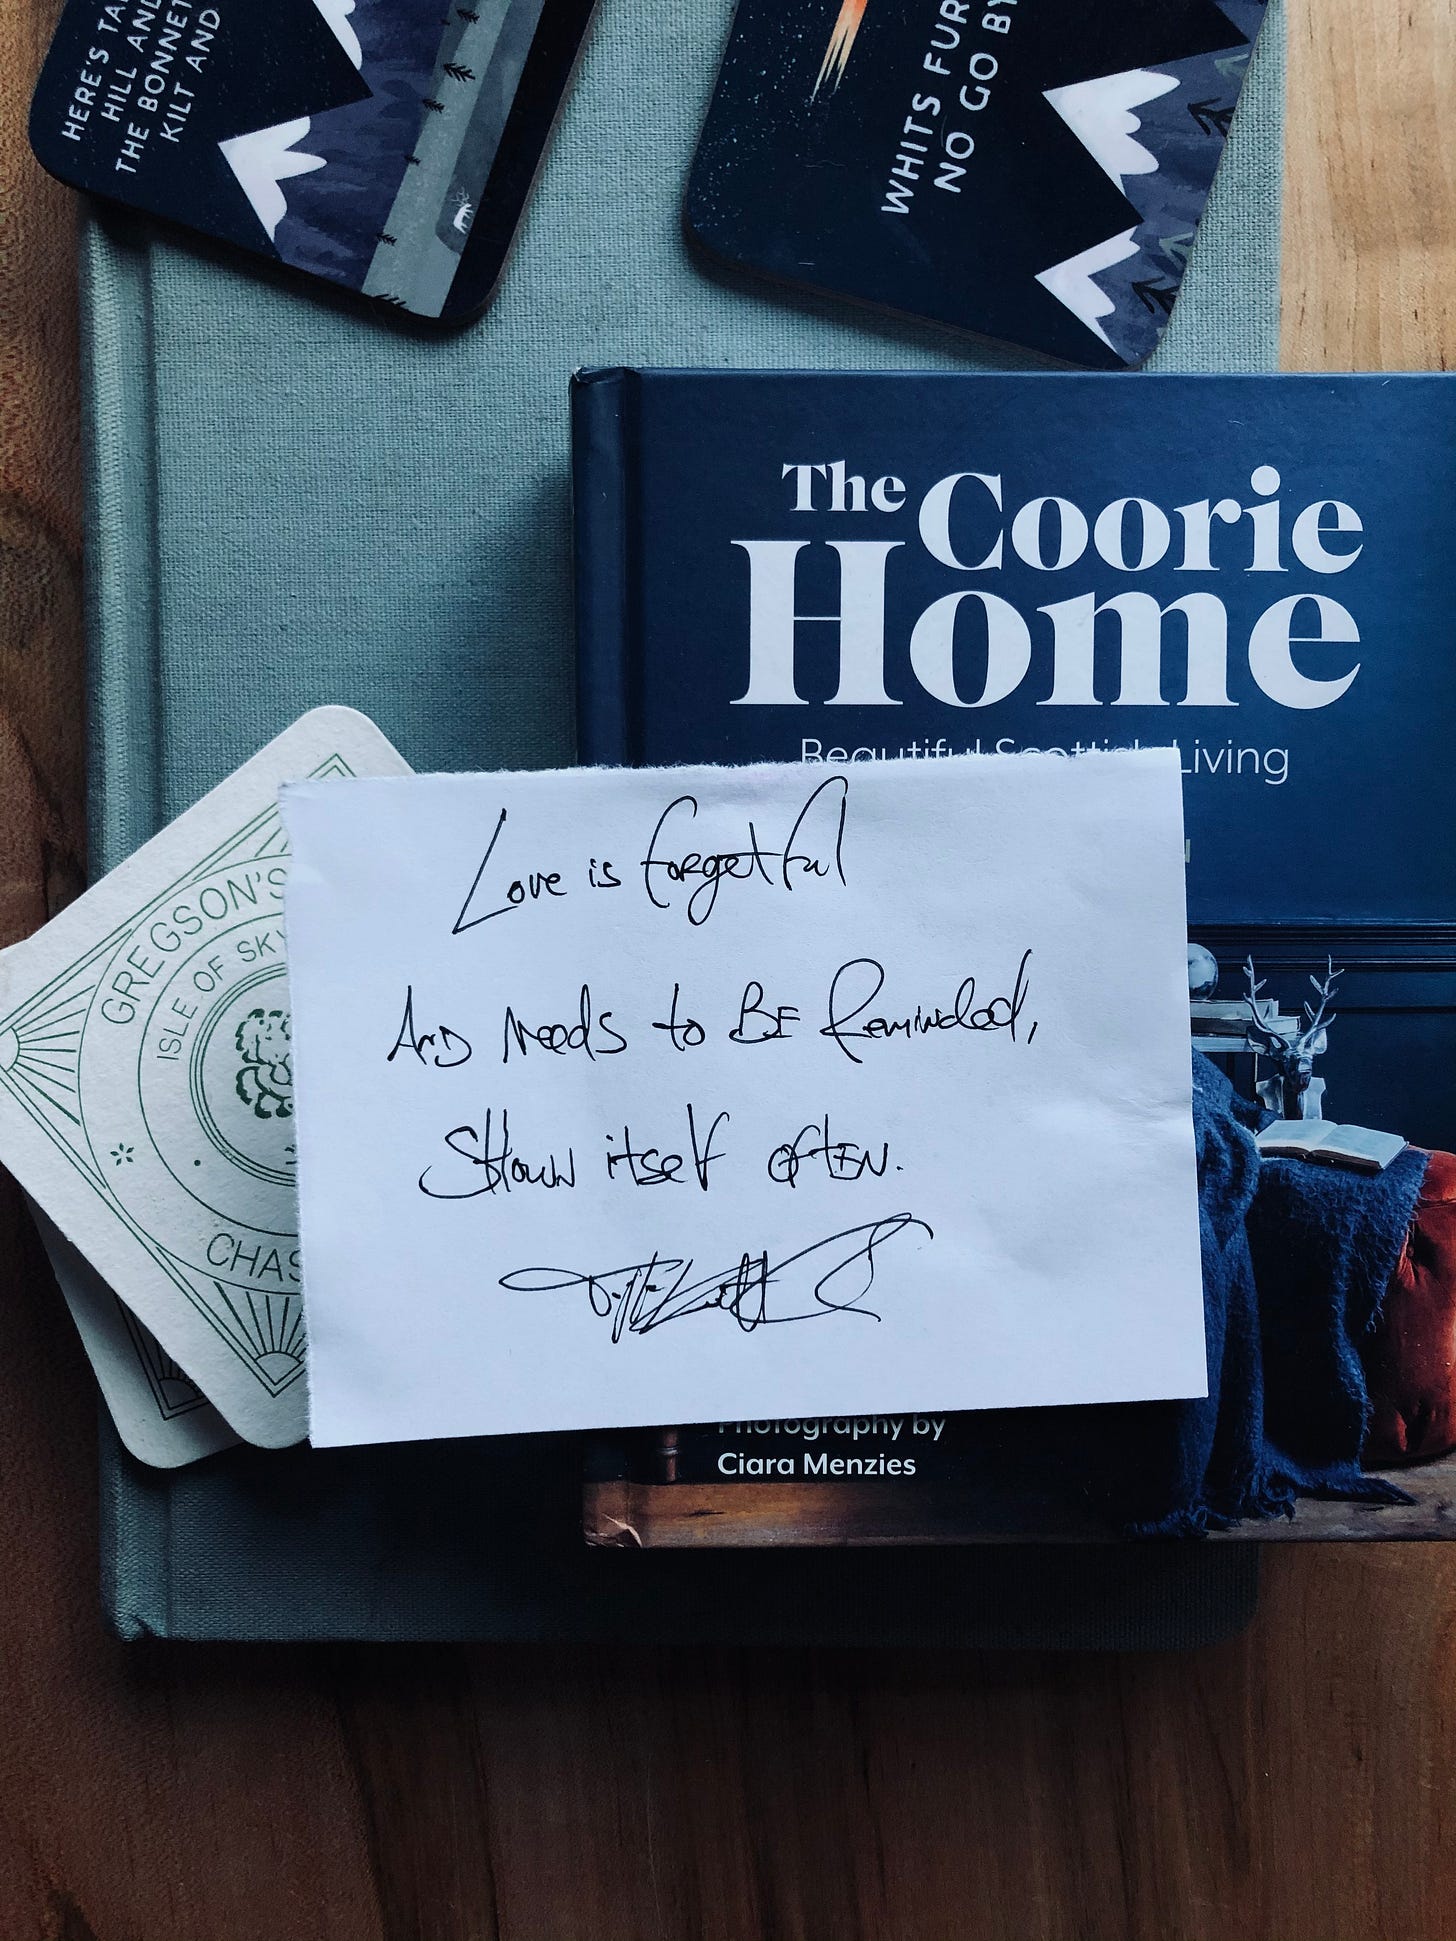 HERE'S TA
HILL AND
THE BONNET
KILT AND
WHITS FUR
NO GO BY
The Coorie
Home
Beautiful Scottish Living
GREGSON'S
ISLE OF SKY
CHAS
Love is forgetful
AND Needs to BE Reminded,
SHown itself oftEN.
Photography by
Ciara Menzies